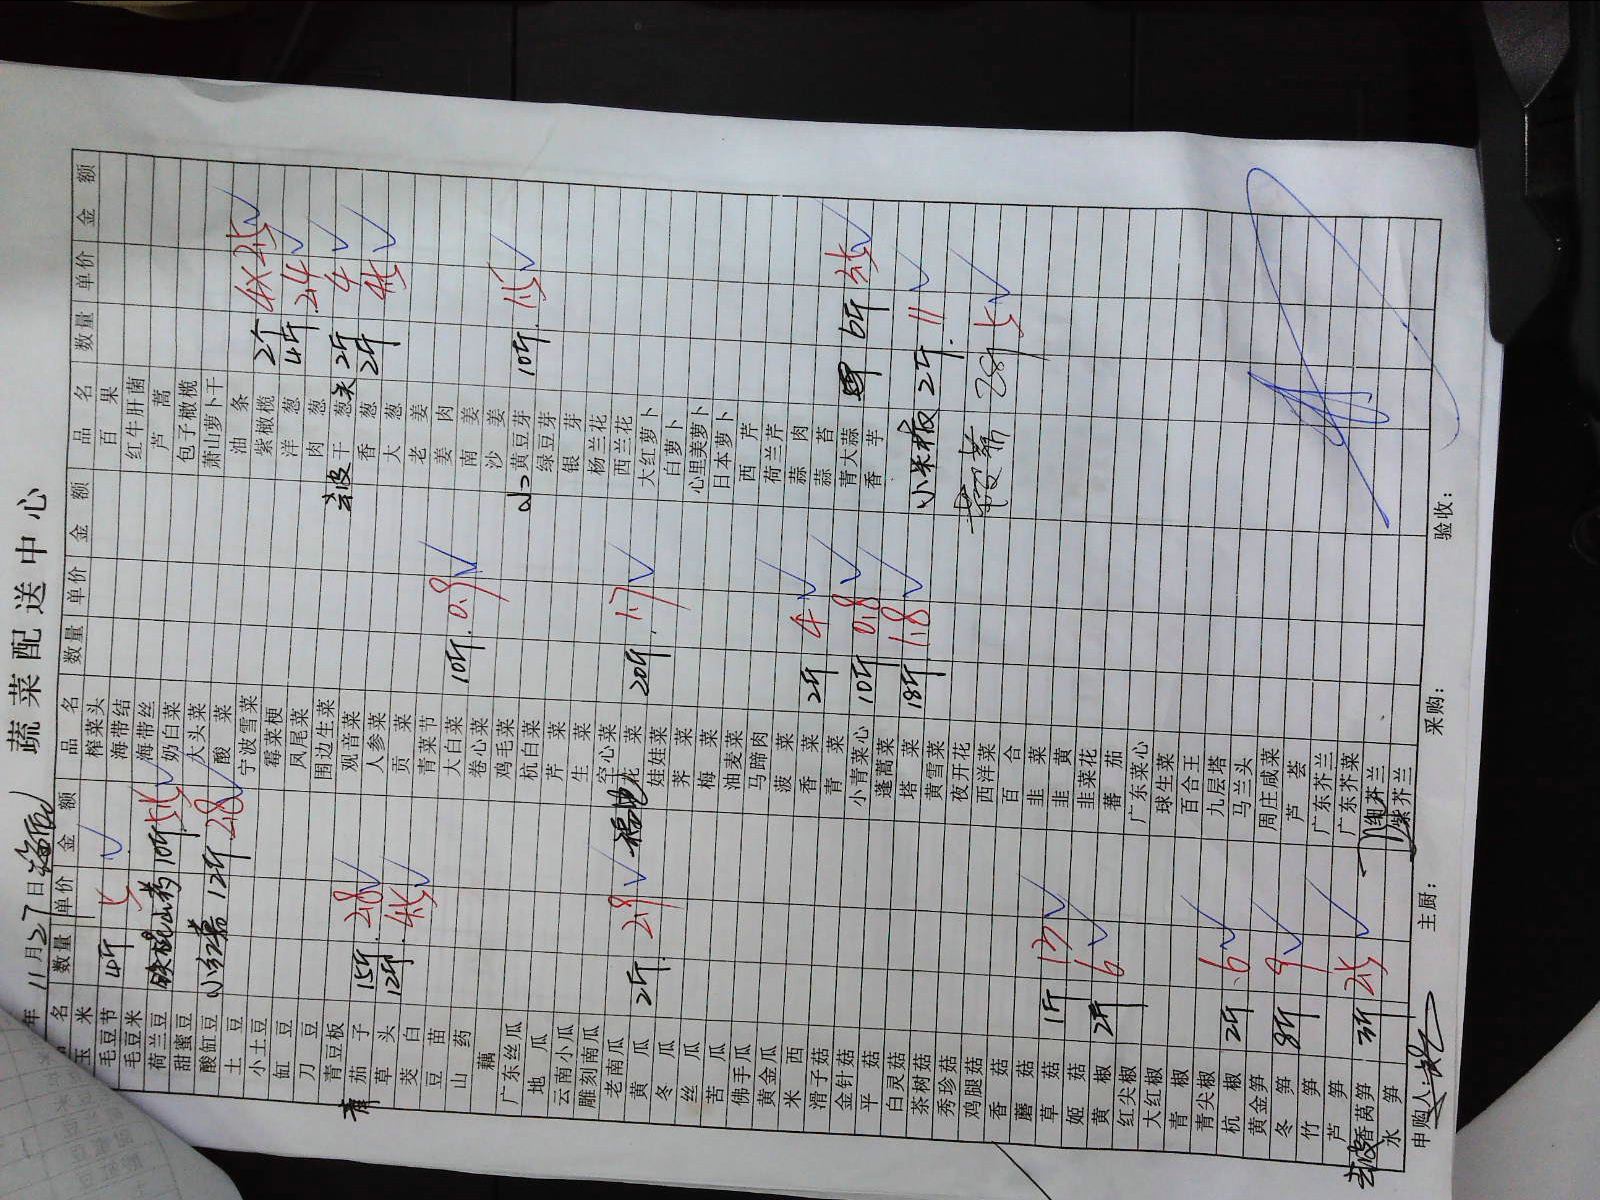 蔬菜配送中心
年 11月27日
品名 数量 单价 金额
玉米
毛豆节 4斤 5
毛豆米
荷兰豆
铁棍山药 10斤
甜蜜豆
酸缸豆
小红薯 12斤 2.8
土豆
小土豆
缸豆
刀豆
青豆板
茄子 15斤 2.8
草头 12斤 4.5
茭白
豆苗
山药
藕
广东丝瓜
地瓜
云南小瓜
雕刻南瓜
老南瓜
黄瓜 2斤 2.9
冬瓜
丝瓜
苦瓜
佛手瓜
黄金瓜
米西
滑子菇
金针菇
平菇
白灵菇
茶树菇
秀珍菇
鸡腿菇
香菇
蘑菇
草菇 1斤 13
姬菇
黄椒 2斤 6
红尖椒
大红椒
青椒
青尖椒
杭椒 2斤 6
黄金笋
冬笋 8斤 9
竹笋
芦笋
去皮香莴笋 3斤 2.5
水笋
品名 数量 单价 金额
榨菜头
海带结
海带丝
奶白菜
大头菜
酸菜
宁波雪菜
霉菜梗
凤尾菜
围边生菜
观音菜
人参菜
贡菜
青菜节
大白菜 10斤 0.9
卷心菜
鸡毛菜
杭白菜
芹菜
生菜
空心菜
花菜 20斤 1.7
娃娃菜
荠菜
梅菜
油麦菜
马蹄肉
菠菜
香菜 2斤 4
青菜
小青菜心 10斤 0.8
蓬蒿菜
塔菜 18斤 1.8
黄雪菜
夜开花
西洋菜
百合
韭菜
韭黄
韭菜花
蕃茄
广东菜心
球生菜
百合王
九层塔
马兰头
周庄咸菜
芦荟
广东芥兰
广东芥菜
细芥兰
紫芥兰
品名 数量 单价 金额
百果
红牛肝菌
芦蒿
包子橄榄
萧山萝卜干
油条
紫橄榄 2个
洋葱 4斤 2.4
肉葱
去皮干葱头 2斤 4
香葱 2斤 4.5
大葱
老姜
姜肉
南姜
沙姜
黄豆芽 10斤 1.5
绿豆芽
银芽
杨兰花
西兰花
大红萝卜
白萝卜
心里美萝卜
日本萝卜
西芹
荷兰芹
蒜肉
蒜苔
青大蒜 6斤 3.5
香芋
小米椒 2斤 11
申购人：
主厨：
采购：
验收：